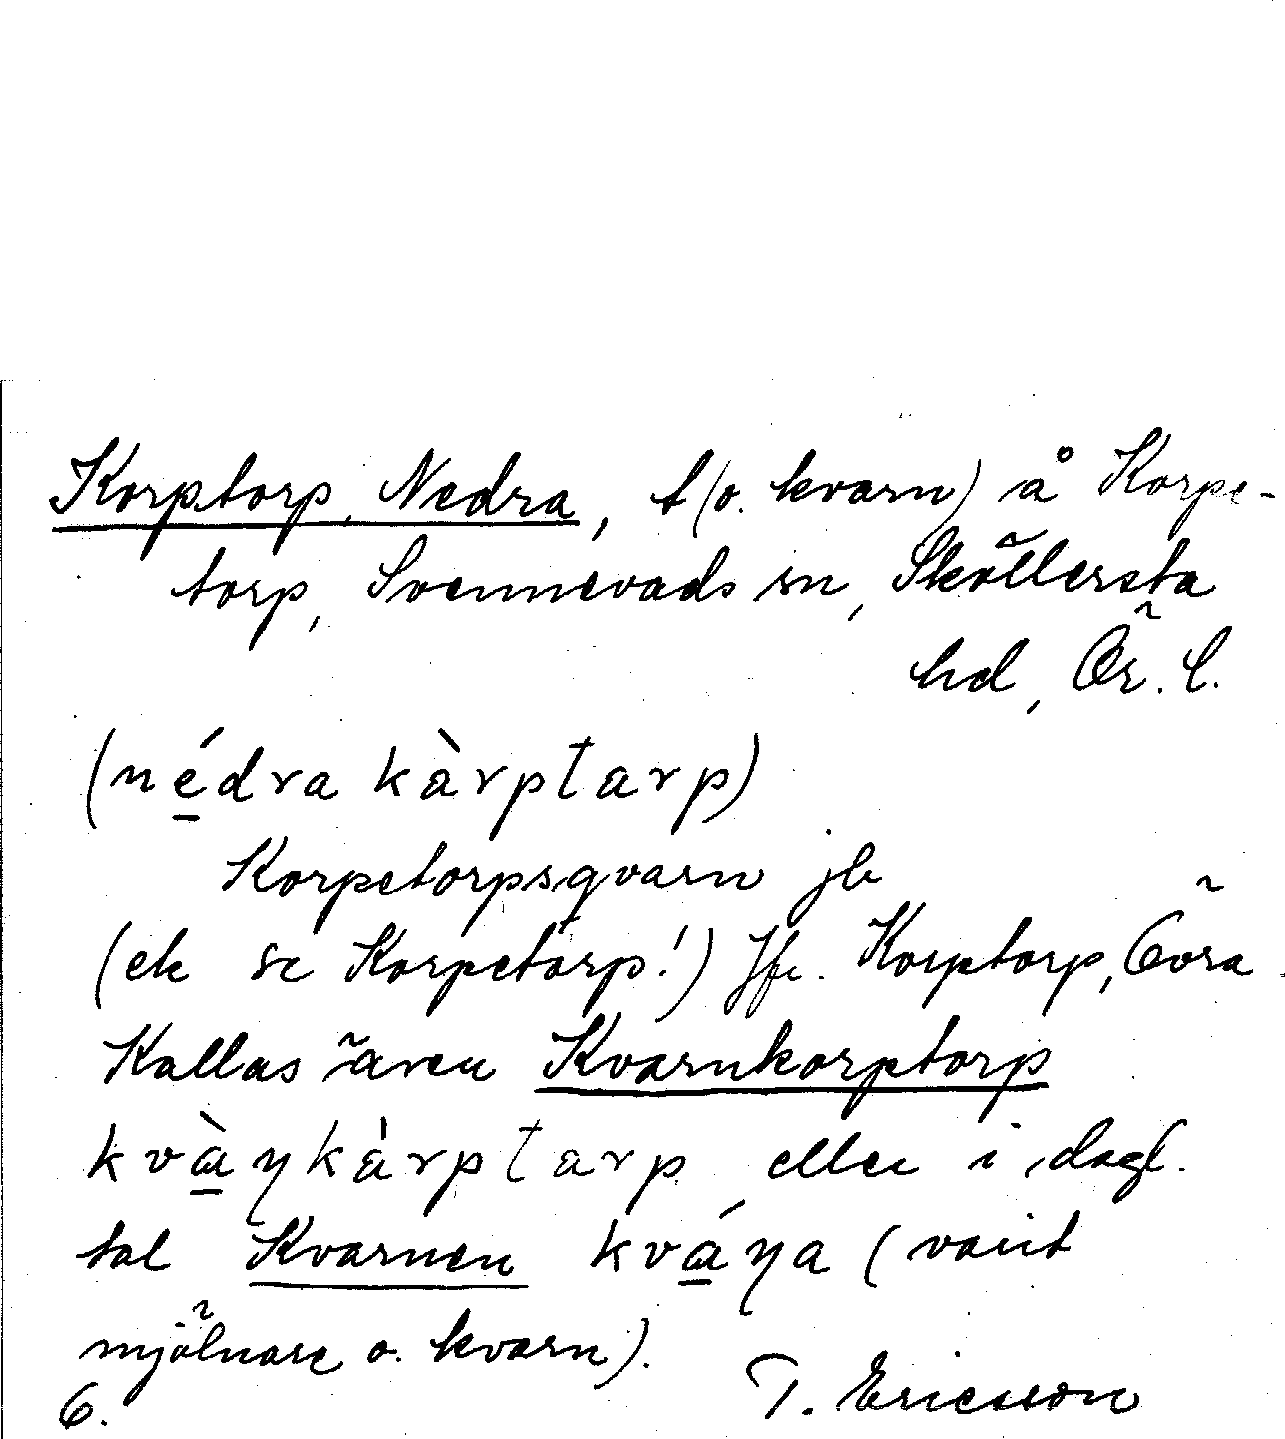 Korptorp, Nedra, t (o. kvarn) å Korpe-
torp, Svennevads sn, Sköllersta
hd, Ör. l.
(nédra kàrptarp)
Korpetorpsqvarn jb
(ek se Korpetorp!) Jfr. Korptorp, Övra.
Kallas även Kvarnkorptorp
kvàŋkàrptarp, eller i dagl.
tal Kvarnen kváŋa (varit
mjölnare o. kvarn).
6. T. Ericsson